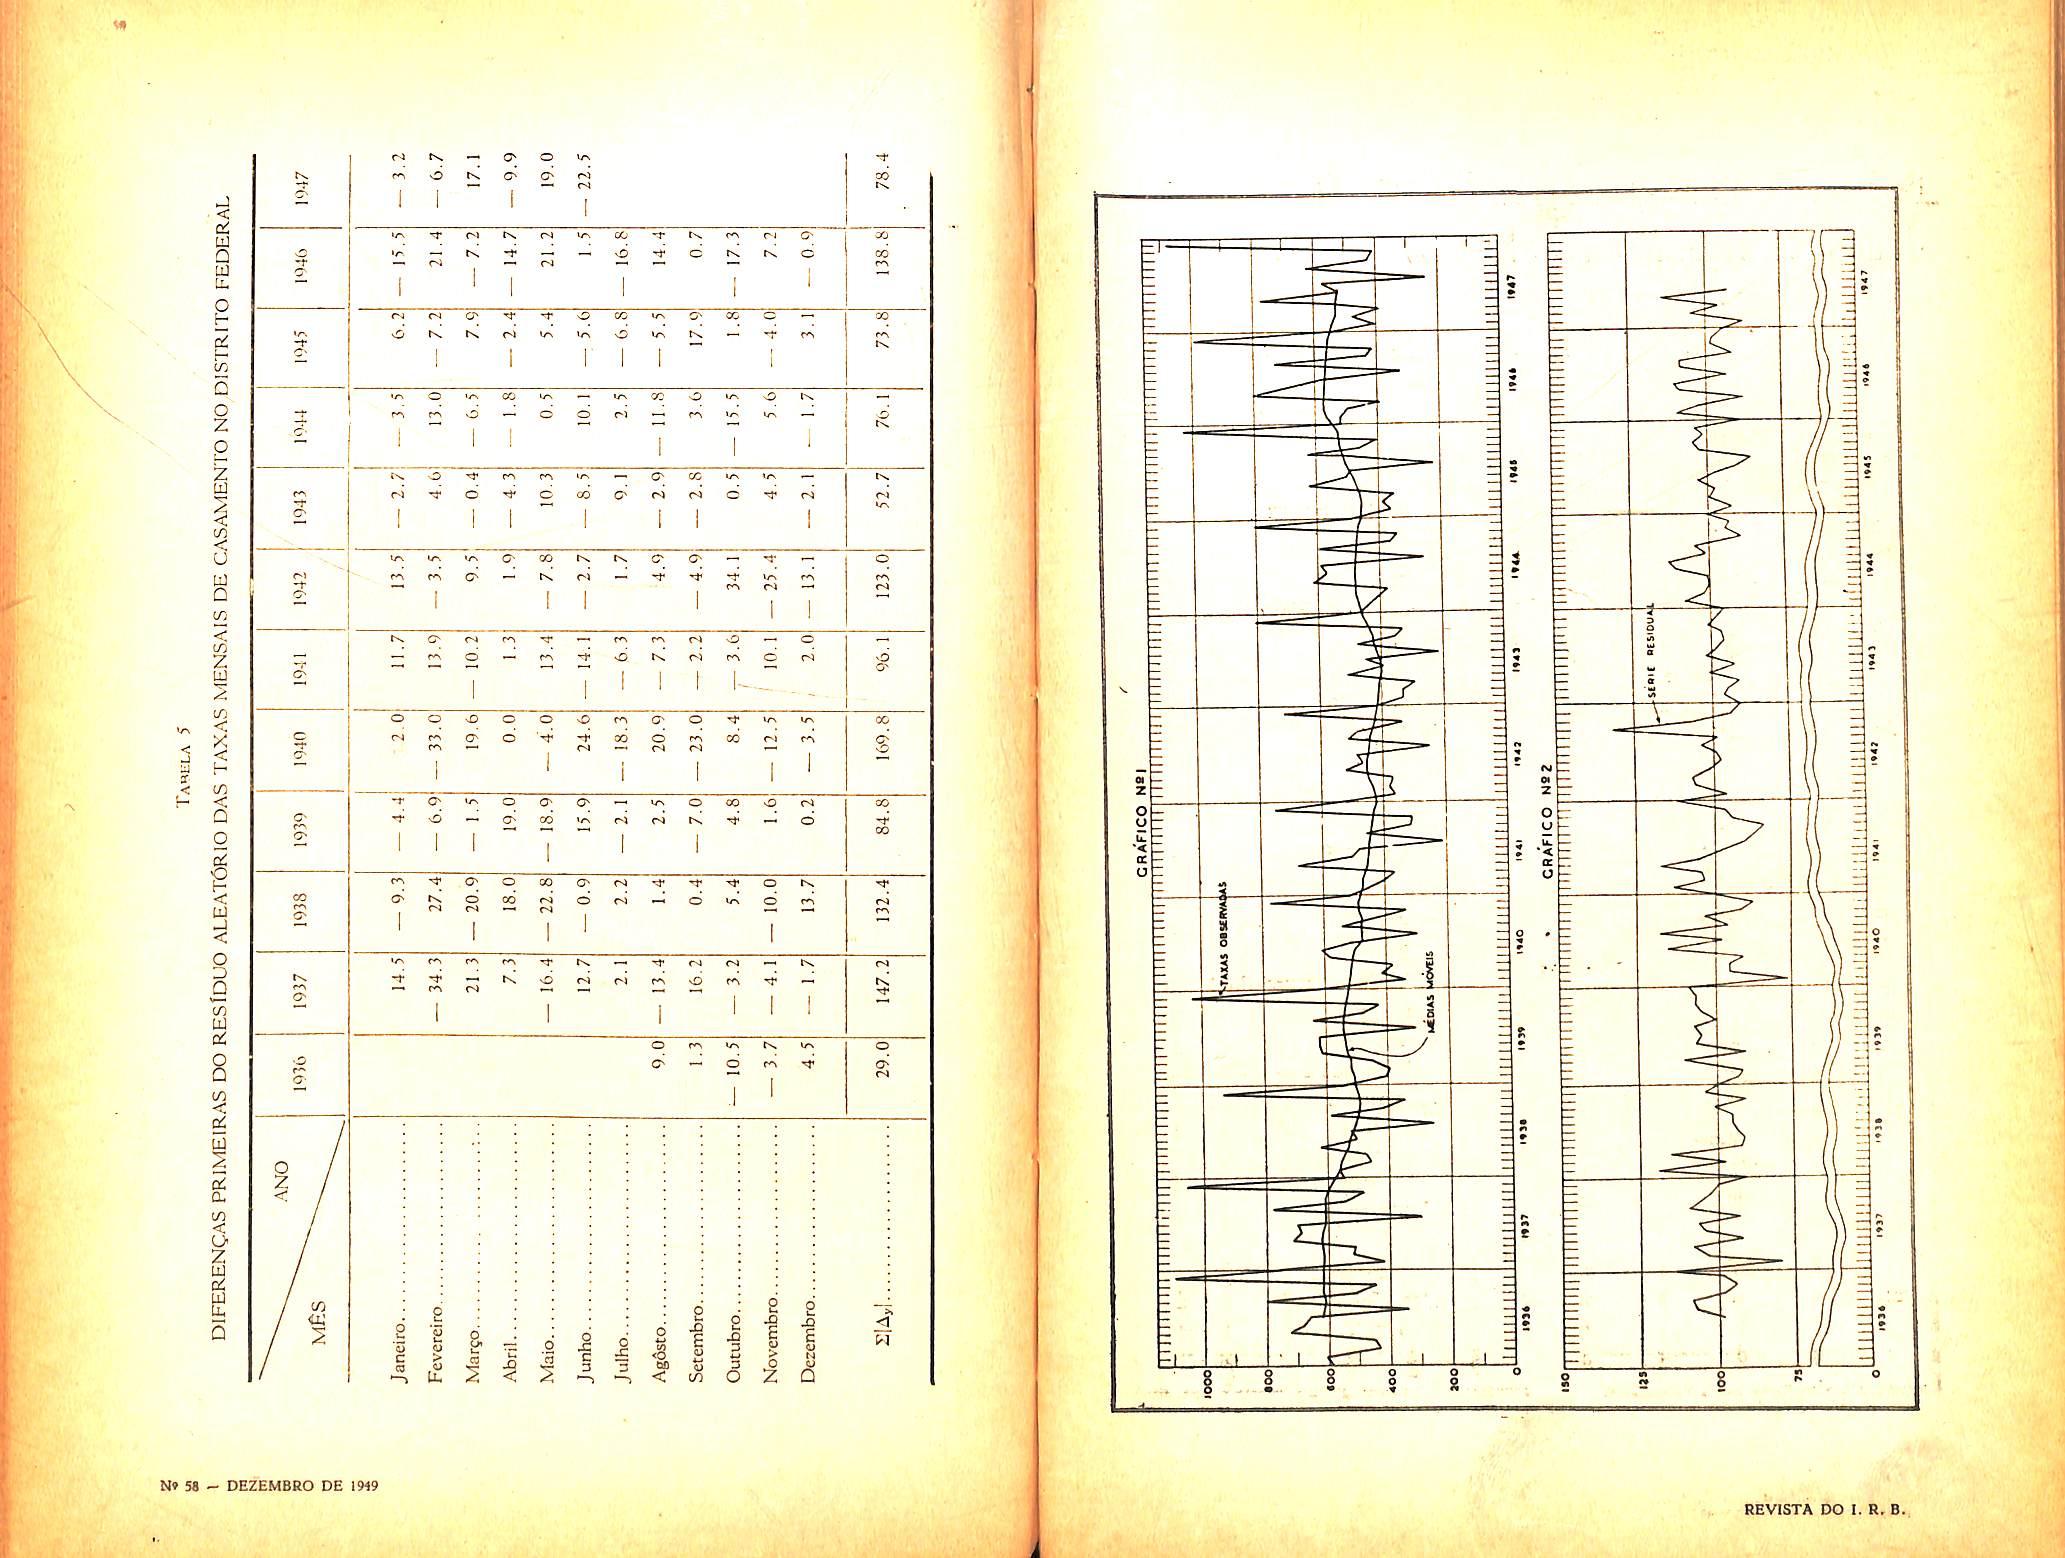 TABELA 5
DIFERENÇAS PRIMEIRAS DO RESÍDUO ALEATÓRIO DAS TAXAS MENSAIS DE CASAMENTO NO DISTRITO FEDERAL
ANO
MÊS
1936 1937 1938 1939 1940 1941 1942 1943 1944 1945 1946 1947
Janeiro 14.5 — 9.3 — 4.4 2.0 11.7 13.5 — 2.7 — 3.5 6.2 — 15.5 — 3.2
Fevereiro — 34.3 27.4 — 6.9 — 33.0 13.9 — 3.5 4.6 13.0 — 7.2 21.4 — 6.7
Março 21.3 — 20.9 — 1.5 19.6 — 10.2 9.5 — 0.4 — 6.5 7.9 — 7.2 17.1
Abril 7.3 18.0 19.0 0.0 1.3 1.9 — 4.3 — 1.8 — 2.4 — 14.7 — 9.9
Maio — 16.4 — 22.8 — 18.9 — 4.0 13.4 — 7.8 10.3 0.5 5.4 21.2 19.0
Junho 12.7 — 0.9 15.9 24.6 — 14.1 — 2.7 — 8.5 10.1 — 5.6 1.5 — 22.5
Julho 2.1 2.2 — 2.1 — 18.3 — 6.3 1.7 9.1 2.5 — 6.8 — 16.8
Agôsto 9.0 — 13.4 1.4 2.5 20.9 — 7.3 4.9 — 2.9 — 11.8 — 5.5 14.4
Setembro 1.3 16.2 0.4 — 7.0 — 23.0 — 2.2 — 4.9 — 2.8 3.6 17.9 0.7
Outubro — 10.5 — 3.2 5.4 4.8 8.4 — 3.6 34.1 0.5 — 15.5 1.8 — 17.3
Novembro — 3.7 — 4.1 — 10.0 1.6 — 12.5 10.1 — 25.4 4.5 5.6 — 4.0 7.2
Dezembro 4.5 — 1.7 13.7 0.2 — 3.5 2.0 — 13.1 — 2.1 — 1.7 3.1 — 0.9
Σ|Δy| 29.0 147.2 132.4 84.8 169.8 96.1 123.0 52.7 76.1 73.8 138.8 78.4
Nº 58 — DEZEMBRO DE 1949
GRÁFICO Nº1
1000
800
600
400
200
0
TAXAS OBSERVADAS
MÉDIAS MÓVEIS
1936 1937 1938 1939 1940 1941 1942 1943 1944 1945 1946 1947
GRÁFICO Nº2
150
125
100
75
0
SÉRIE RESIDUAL
1936 1937 1938 1939 1940 1941 1942 1943 1944 1945 1946 1947
REVISTA DO I. R. B.